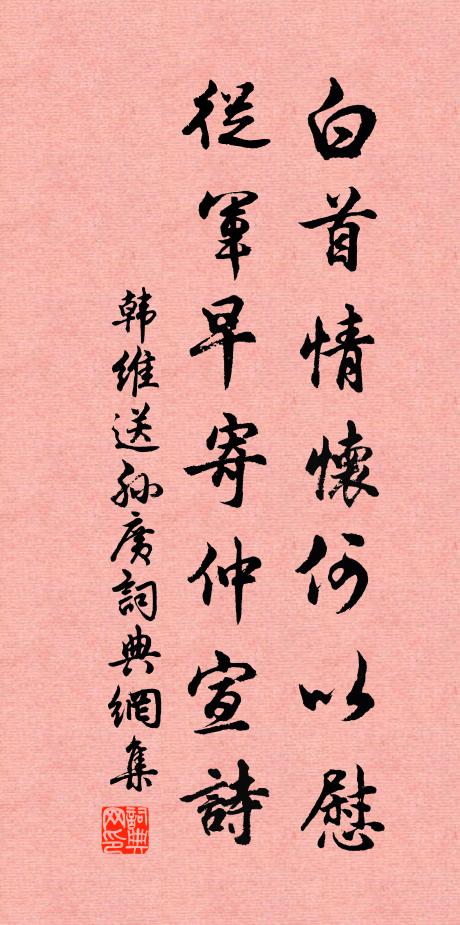 白首情懷何以慰
從軍早寄仲宣詩
韩維送孙廣詞典網集
詞典网印